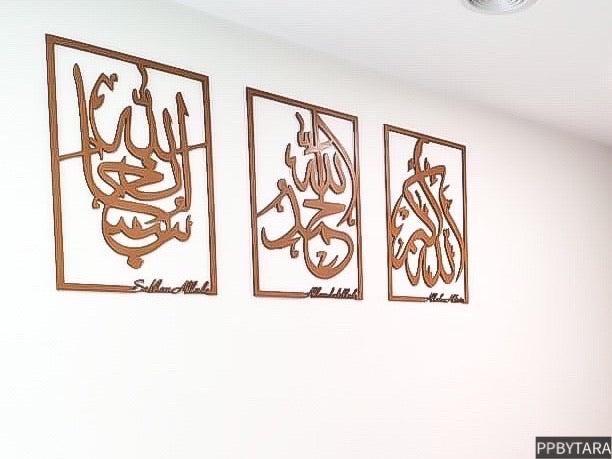 سبحان الله
الحمد لله
الله أكبر
SubhanAllah
Alhamdulillah
Allahu Akbar
PPBYTARA